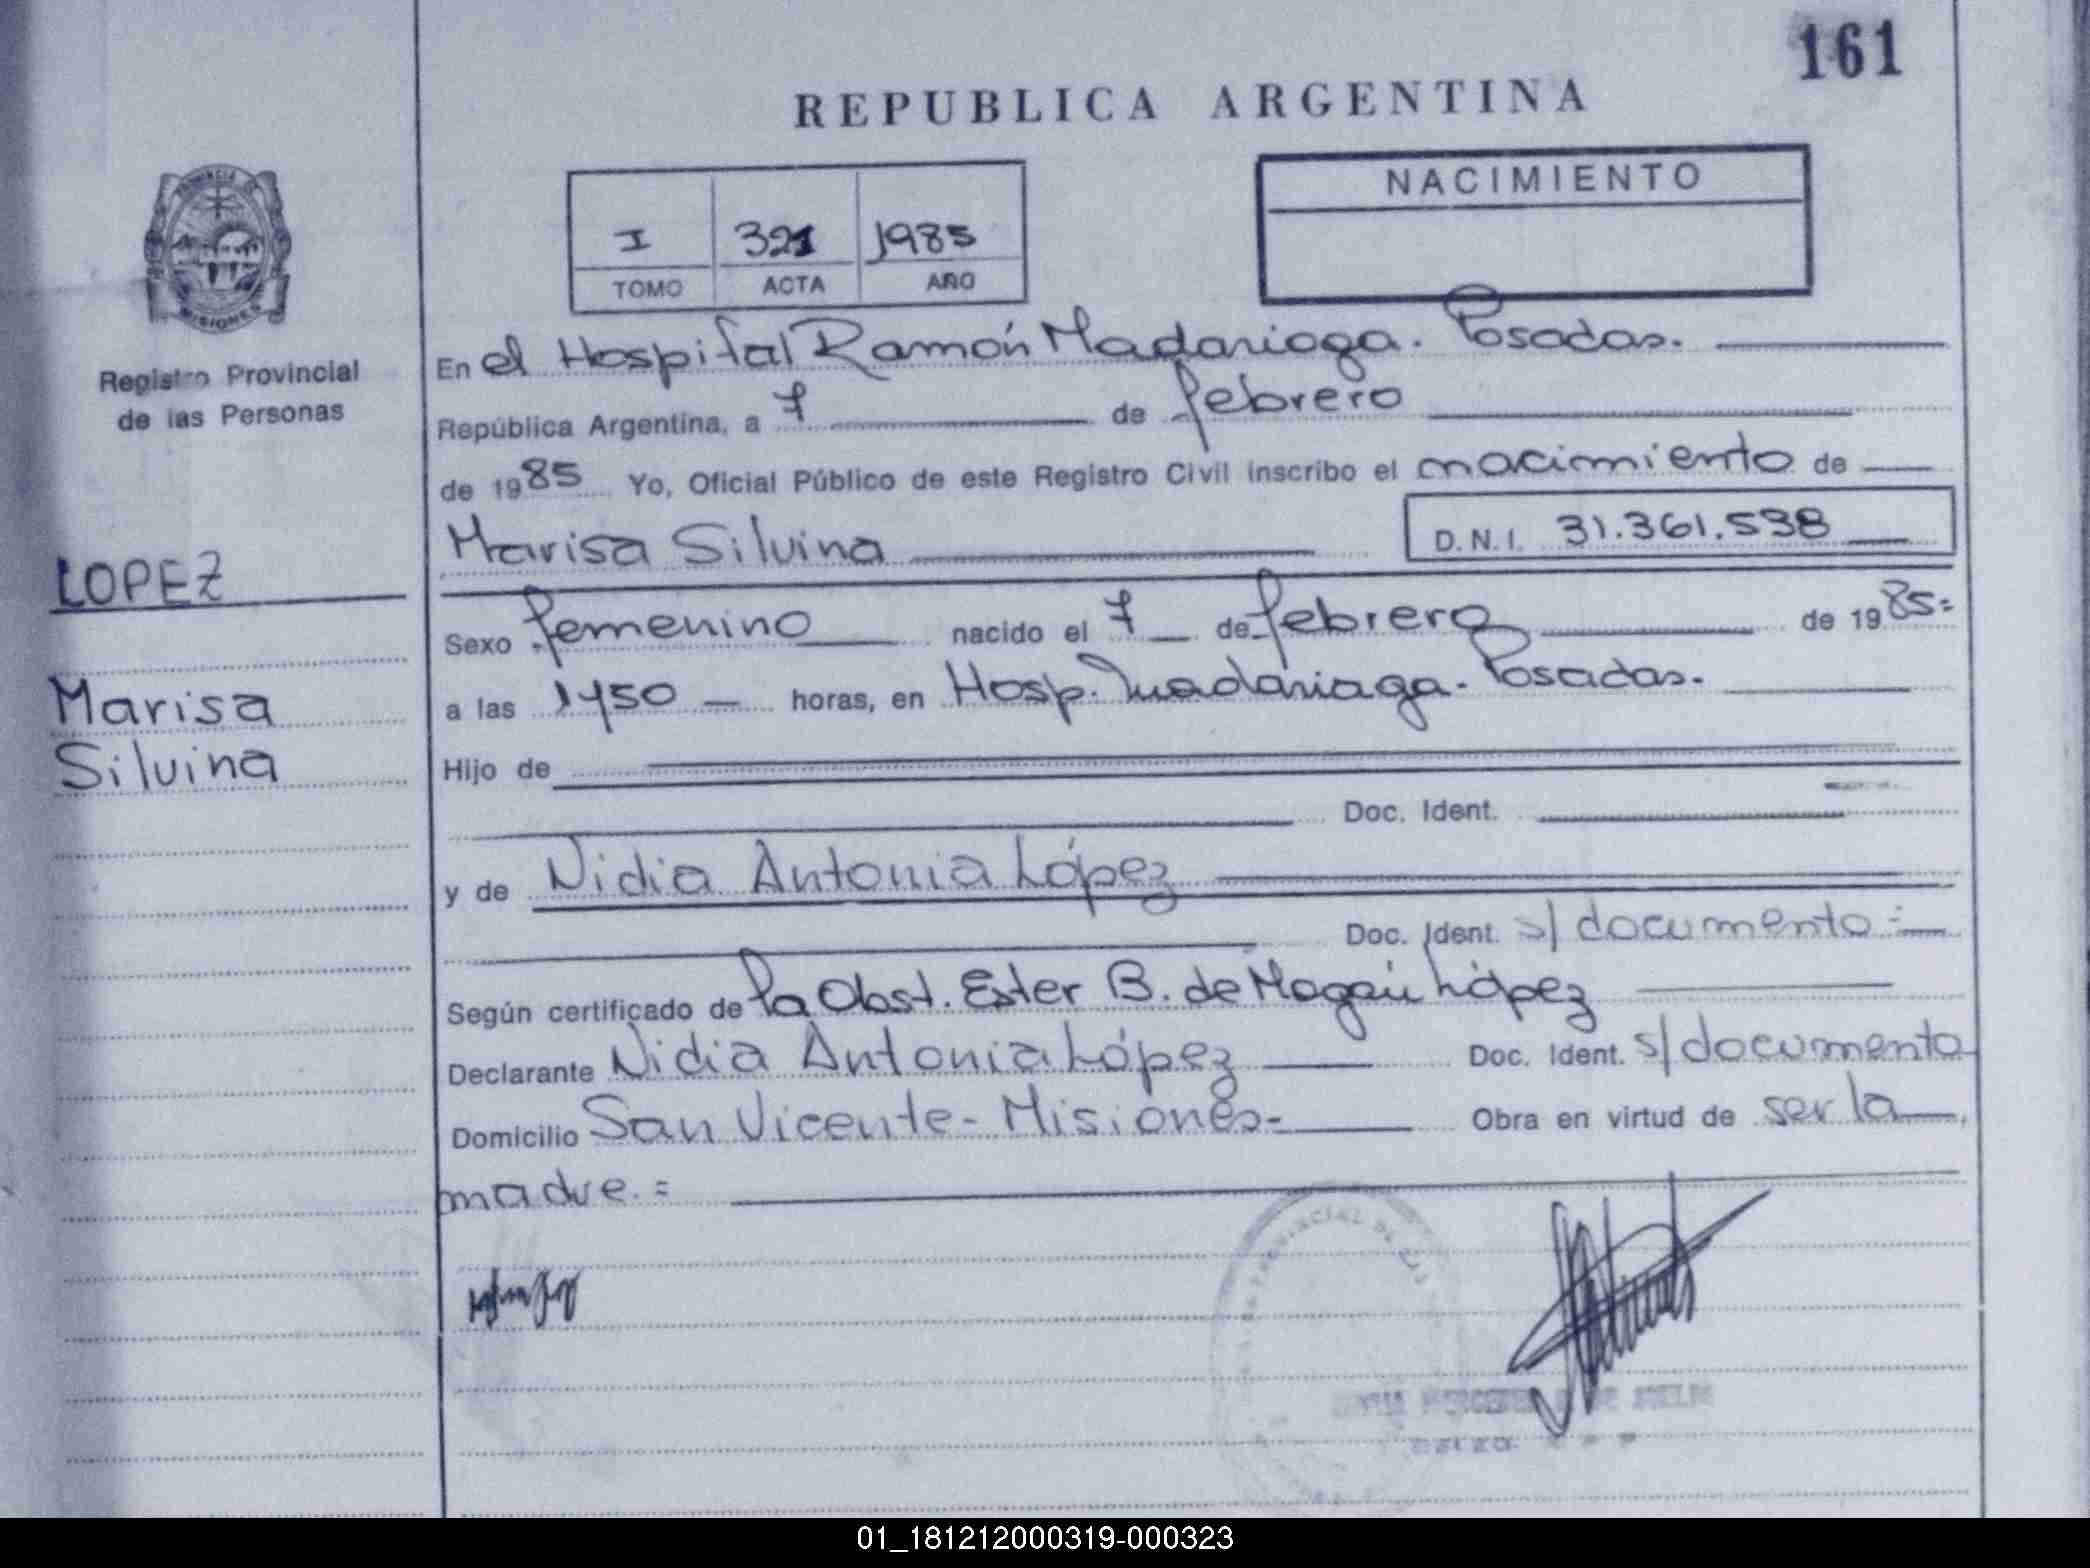 161
REPUBLICA ARGENTINA
NACIMIENTO
I 321 1985
TOMO ACTA AÑO
PROVINCIA DE
MISIONES
Registro Provincial
de las Personas
LOPEZ
Marisa
Silvina
En el Hospital Ramón Madariaga. Posadas.
República Argentina, a 7 de febrero
de 1985 Yo, Oficial Público de este Registro Civil inscribo el nacimiento de
Marisa Silvina D.N.I. 31.361.538
Sexo femenino nacido el 7 de febrero de 1985=
a las 1450 horas, en Hosp. Madariaga. Posadas.
Hijo de
Doc. Ident.
y de Nidia Antonia López
Doc. Ident. s/ documento
Según certificado de la Obst. Ester B. de López
Declarante Nidia Antonia López Doc. Ident. s/documento
Domicilio San Vicente - Misiones- Obra en virtud de ser la
madre. =
PROVINCIAL DE LAS
01_181212000319-000323